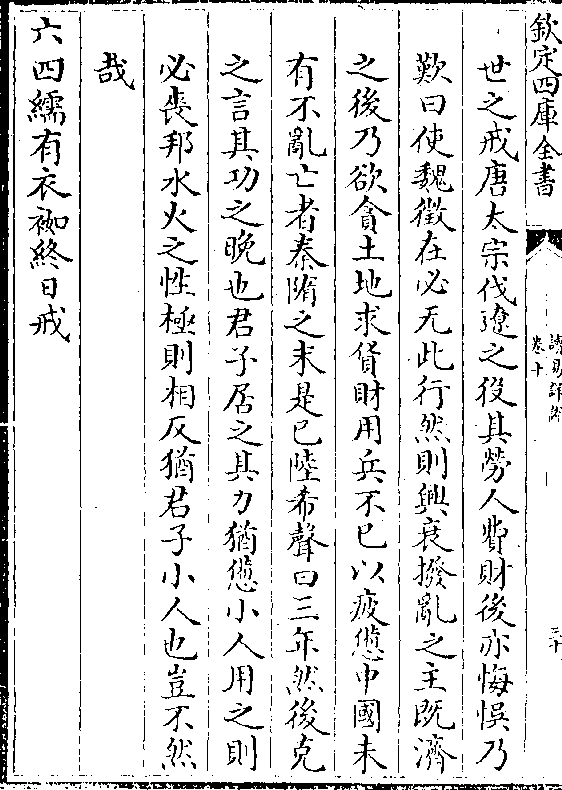 欽定四庫全書
讀易詳說
卷十
三十
世之戒唐太宗伐遼之役其勞人費財後亦悔悞乃
歎曰使魏徵在必无此行然則興衰撥亂之主既濟
之後乃欲貪土地求貨財用兵不已以疲憊中國未
有不亂亡者秦隋之末是已陸希聲曰三年然後克
之言其功之晚也君子居之其力猶憊小人用之則
必喪邦水火之性極則相反猶君子小人也豈不然
哉
六四繻有衣袽終日戒